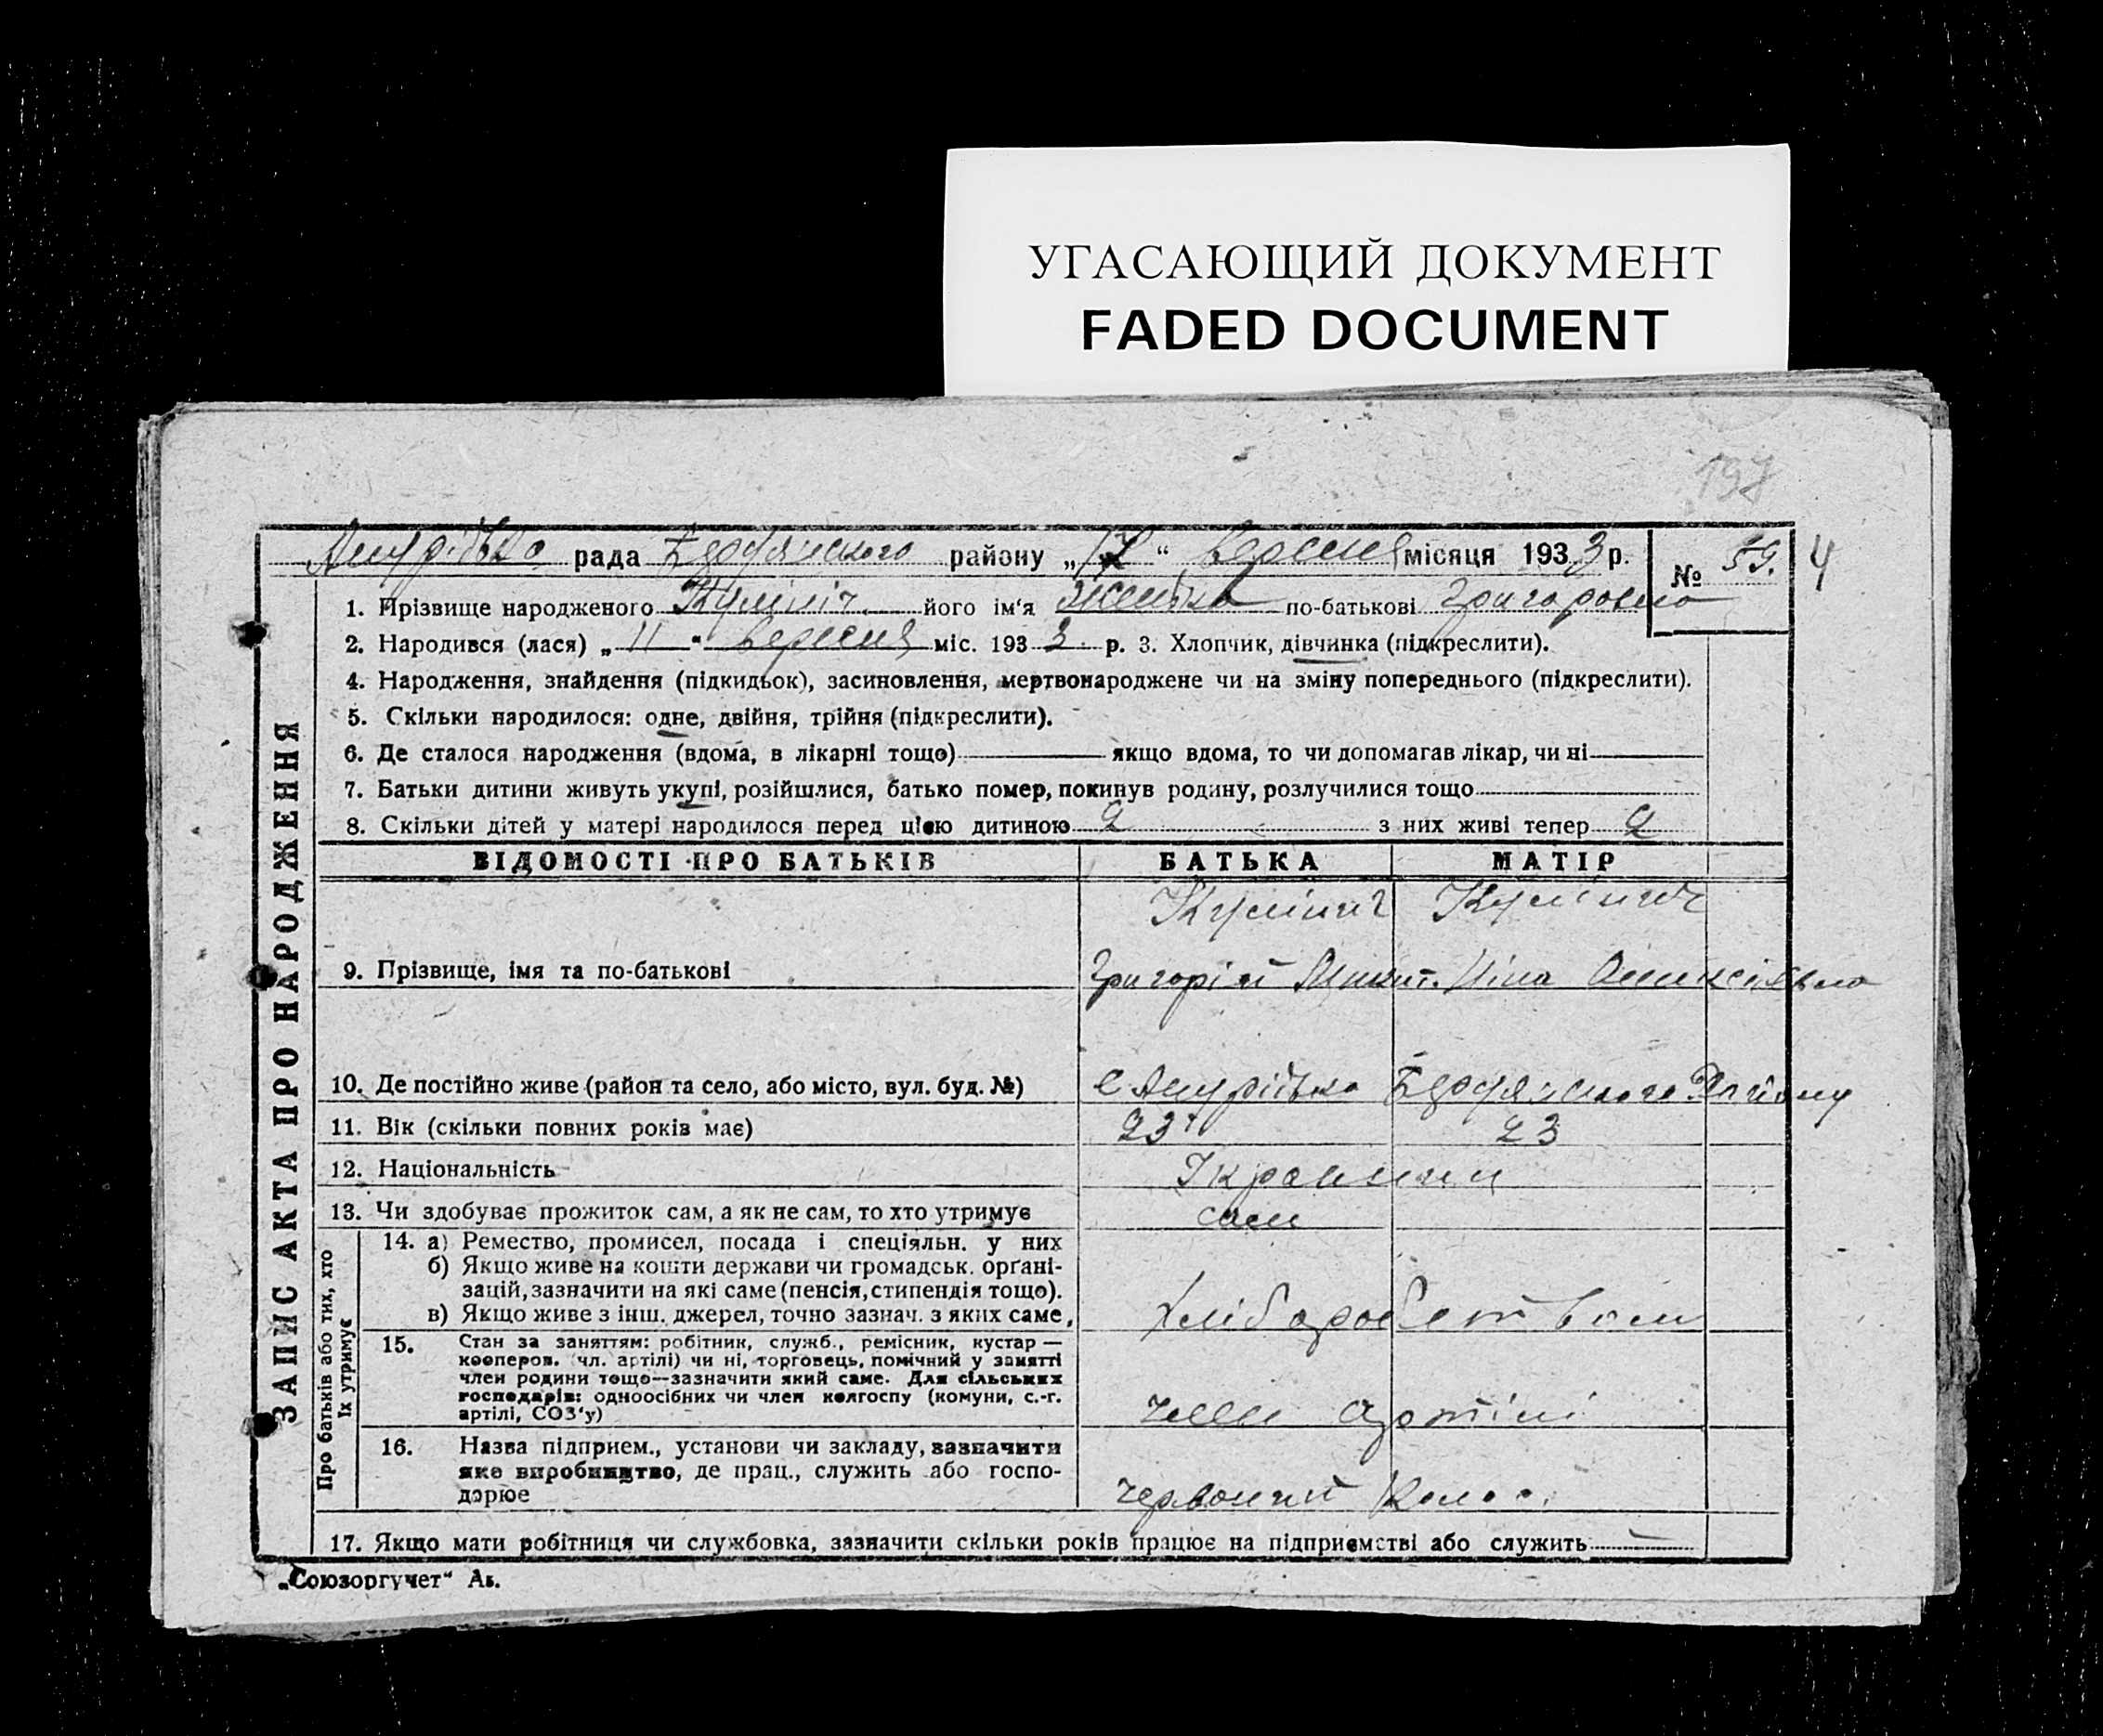 УГАСАЮЩИЙ ДОКУМЕНТ
FADED DOCUMENT
197
рада району „17“ вересня місяця 1933 р. № 59. 4
1. Прізвище народженого Кулініч його ім‘я по-батькові Григоровна
2. Народився (лася) „11“ вересня міс. 1933 р. 3. Хлопчик, дівчинка (підкреслити).
4. Народження, знайдення (підкидьок), засиновлення, мертвонароджене чи на зміну попереднього (підкреслити).
5. Скільки народилося: одне, двійня, трійня (підкреслити).
6. Де сталося народження (вдома, в лікарні тощо) якщо вдома, то чи допомагав лікар, чи ні
7. Батьки дитини живуть укупі, розійшлися, батько помер, покинув родину, розлучилися тощо
8. Скільки дітей у матері народилося перед цією дитиною 2 з них живі тепер 2
ВІДОМОСТІ ПРО БАТЬКІВ БАТЬКА МАТІР
Кулінич Кулінич
9. Прізвище, імя та по-батькові Григорій Ніна
10. Де постійно живе (район та село, або місто, вул. буд. №) с Району
11. Вік (скільки повних років має) 23 23
12. Національність Українци
13. Чи здобуває прожиток сам, а як не сам, то хто утримує сам
14. а) Ремество, промисел, посада і спеціяльн. у них
б) Якщо живе на кошти держави чи громадськ. орґані-
зацій, зазначити на які саме (пенсія, стипендія тощо).
в) Якщо живе з інш. джерел, точно зазнач. з яких саме, хліборобством
15. Стан за заняттям: робітник, служб., ремісник, кустар —
кооперов. (чл. артілі) чи ні, торговець, помічний у занятті
член родини тощо—зазначити який саме. Для сільських
господарів: одноосібних чи член колгоспу (комуни, с.-г.
артілі, СОЗ‘у) член артілі
16. Назва підприєм., установи чи закладу, зазначити
яке виробництво, де прац., служить або госпо-
дарює Червоний Колос.
17. Якщо мати робітниця чи службовка, зазначити скільки років працює на підприємстві або служить
ЗАПИС АКТА ПРО НАРОДЖЕННЯ
Про батьків або тих, хто
їх утримує
„Союзоргучет“ Аз.